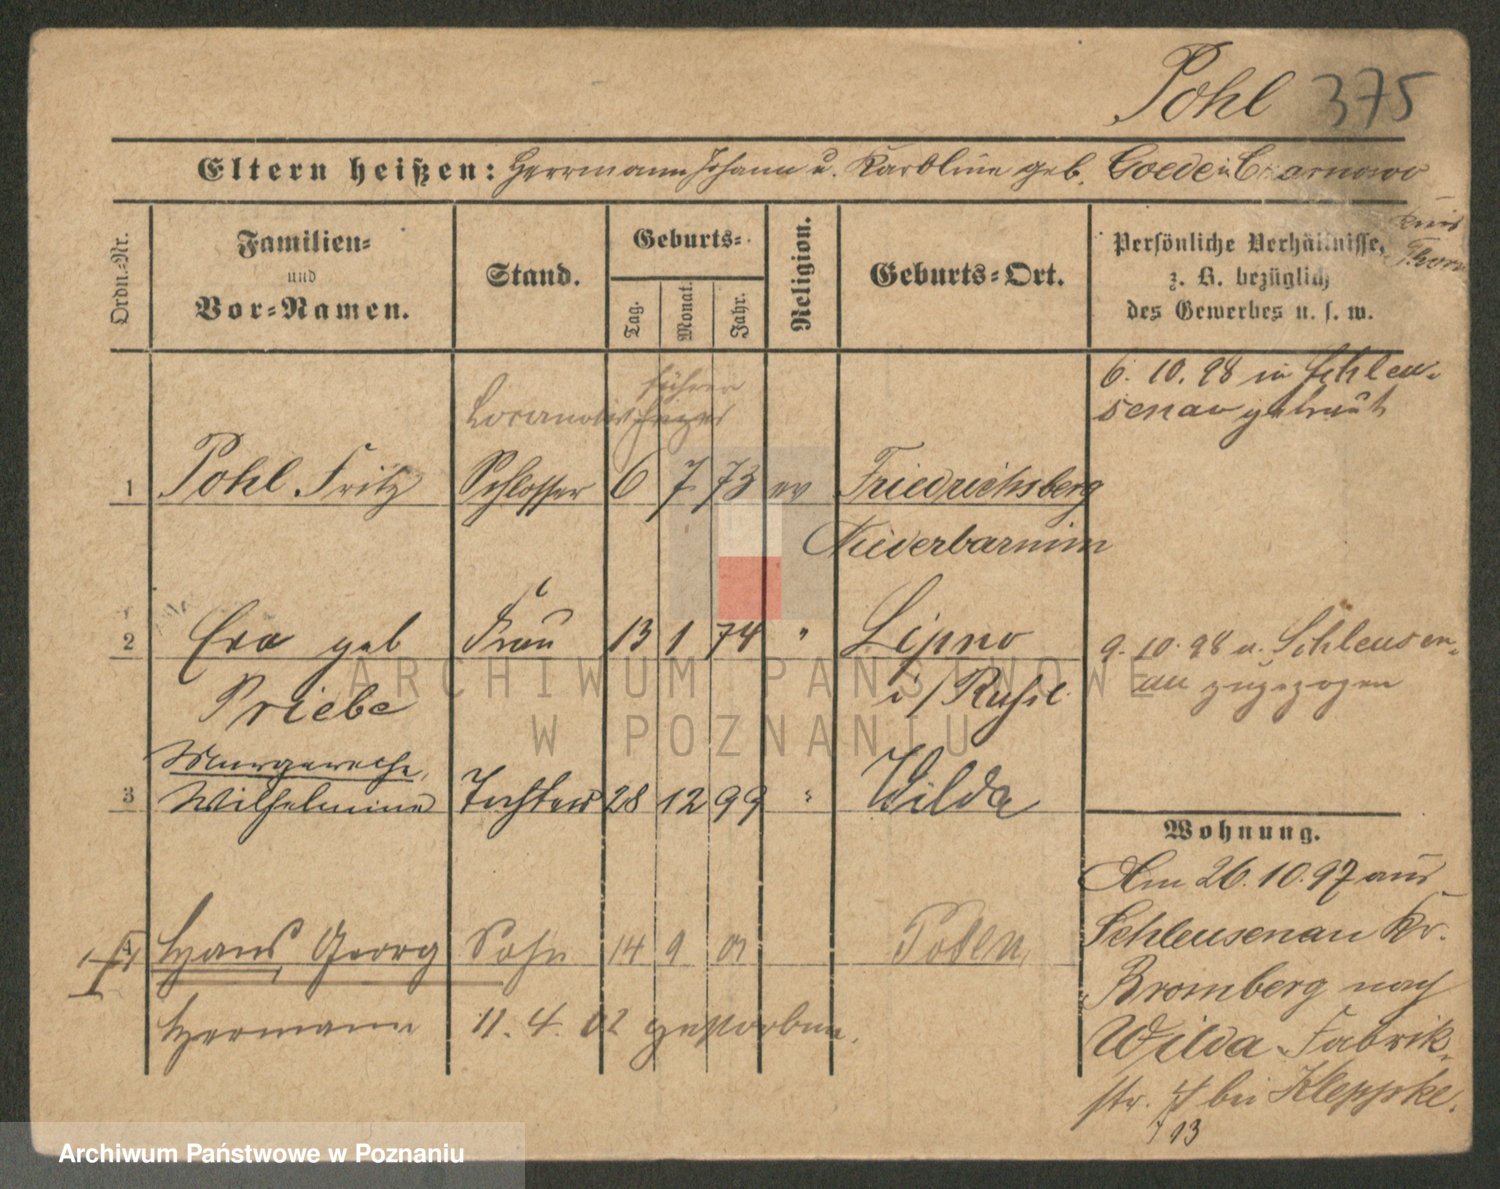 Pohl 375
Eltern heißen: Herrmann Johann u. Karoline geb. Goede in Czarnowo
Kreis
Thorn
Ordn.-Nr.
Familien-
und
Vor-Namen.
Stand.
Geburts-
Tag.
Monat.
Jahr.
Religion.
Geburts-Ort.
Persönliche Verhältnisse,
z. B. bezüglich
des Gewerbes u. s. w.
führer
Locomotivheizer
6. 10. 98 in Schleu-
senau getraut
1 Pohl Fritz Schlosser 6 7 73 ev Friedrichsberg
Niederbarnim
2 Eva geb Frau 13 1 74 " Lipno
Priebe i/Rußl.
9. 10. 98 a. Schleusen-
au zugezogen
Margarethe,
3 Wilhelmine Tochter 28 12 99 " Wilda
Wohnung.
Am 26. 10. 97 aus
Schleusenau Kr.
Bromberg nach
Wilda Fabrik-
str. bei Kleppke.
13
4 Hans, Georg Sohn 14 9 01 Posen
Hermann 11. 4. 02 gestorben.
ARCHIWUM PAŃSTWOWE
W POZNANIU
Archiwum Państwowe w Poznaniu